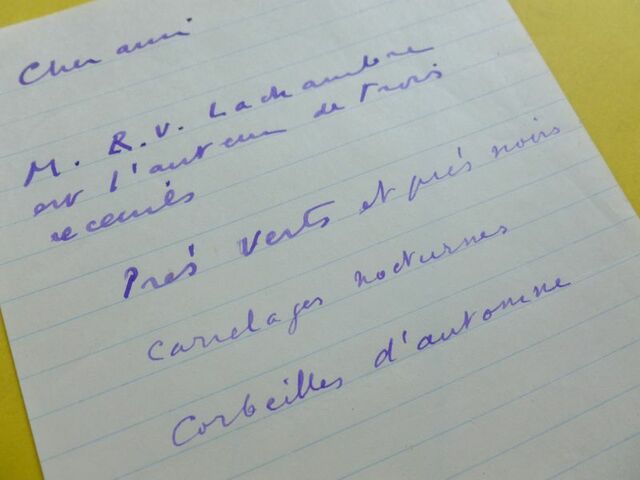 Cher ami
M. R.V. Lachambre
est l'auteur de trois
recueils
Prés verts et prés noirs
Carrelages nocturnes
Corbeilles d'automne